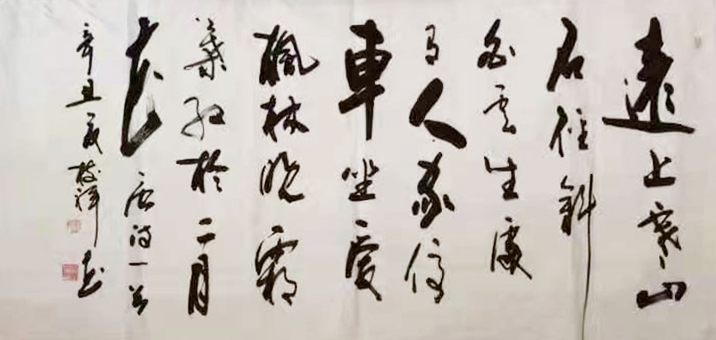 遠上寒山
石径斜
白云生處
有人家停
車坐愛
楓林晚霜
葉红於二月
花 唐诗一首
辛丑 祥書